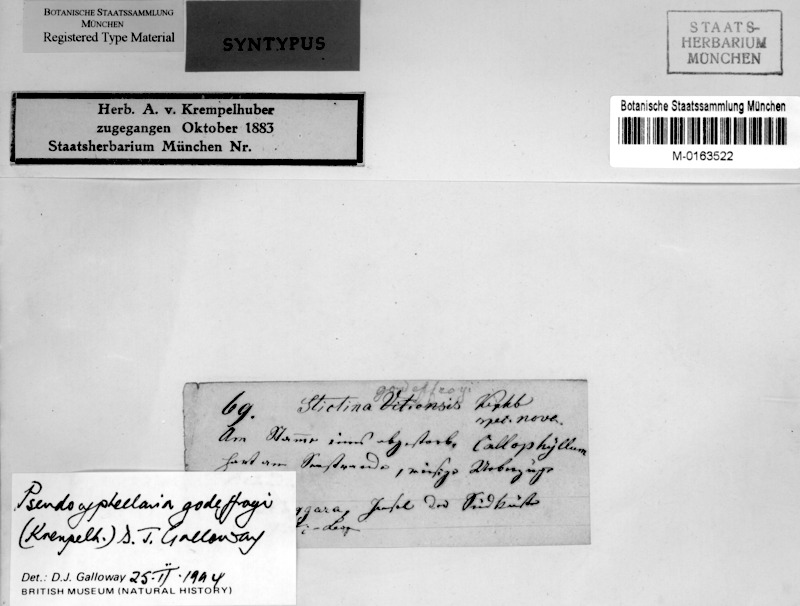 BOTANISCHE STAATSSAMMLUNG
MÜNCHEN
Registered Type Material
SYNTYPUS
STAATS-
HERBARIUM
MÜNCHEN
Herb. A. v. Krempelhuber
zugegangen Oktober 1883
Staatsherbarium München Nr.
Botanische Staatssammlung München
M-0163522
godeffroyi
69. Stictina Vitiensis Krphb
spec. nova.
Am Stamme eines abgestorb. Callophyllum
hart am Seestrande,
Insel der Südküste
Pseudocyphellaria godeffroyi
(Krempelh.) D. J. Galloway
Det.: D.J. Galloway 25·II·1984
BRITISH MUSEUM (NATURAL HISTORY)